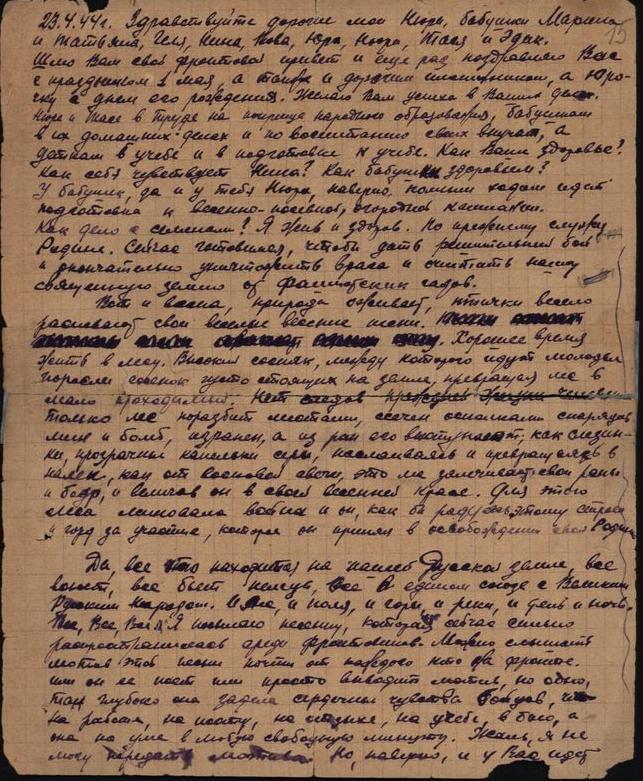 15
23.4.44г. Здравствуйте дорогие мои Нюра, бабушки Марина
и Татьяна, Геля, Нина, Вова, Юра, Нюра, Тася и Эдик.
Шлю Вам свой фронтовой привет и еще раз поздравляю Вас
с праздником 1 мая, а также и дорогим именинником, а Юро-
чку с днем его рождения. Желаю Вам успеха в Ваших делах.
Нюре и Тасе в труде на поприще народного образования, бабушкам
в их домашних делах и по воспитанию своих внучат, а
деткам в учебе и в подготовке к учебе. Как Ваше здоровье?
Как себя чувствует Нина? Как бабушки здоровьем?
У бабушек, да и у тебя Нюра, наверно, полным ходом идет
подготовка к весенне-посевной, огородной кампании.
Как дело с семенами? Я жив и здоров. По прежнему служу
Родине. Сейчас готовимся, чтобы дать решительный бой
и окончательно уничтожить врага и очистить нашу
священную землю от фашистских гадов.
Вот и весна, природа оживает, птички весело
распевают свои веселые весенние песни. Хорошее время
жить в лесу. Высокий сосняк, между которого идут молодые
поросли сосенок густо стоящих на земле, превращая лес в
мало проходимый. Нет следов
только лес поразбит местами, иссечен осколками снарядов
мин и бомб, изранен, а из ран его выступают, как слезин-
ки, прозрачные капельки серы, наслаиваясь и превращаясь в
налет, как от восковой свечи, это лес залечивает свои раны
и бодр, и величав он в своей весенней красе. Для этого
леса миновала война и он, как бы радуясь этому стоит
и горд за участие, которое он принял в освобождении своей Родины
Да, все это находится на нашей Русской земле, все
воюет, все бьет немцев, все в едином союзе с Великим
Русским Народом. И лес, и поля, и горы, и реки, и день и ночь.
Все, Все, Все! Я посылаю песенку, которая сейчас сильно
распространилась среди фронтовиков. Можно слышать
мотив этой песни почти от каждого кто на фронте.
или он ее поет или просто выводит мотив, но одно,
так глубоко она задела сердечные чувства бойцов, что
на работе, на посту, на отдыхе, на учебе, в бою, а
она на уме в любую свободную минуту. Жаль, я не
могу передать мотива. Но, наверно, и у Вас идет